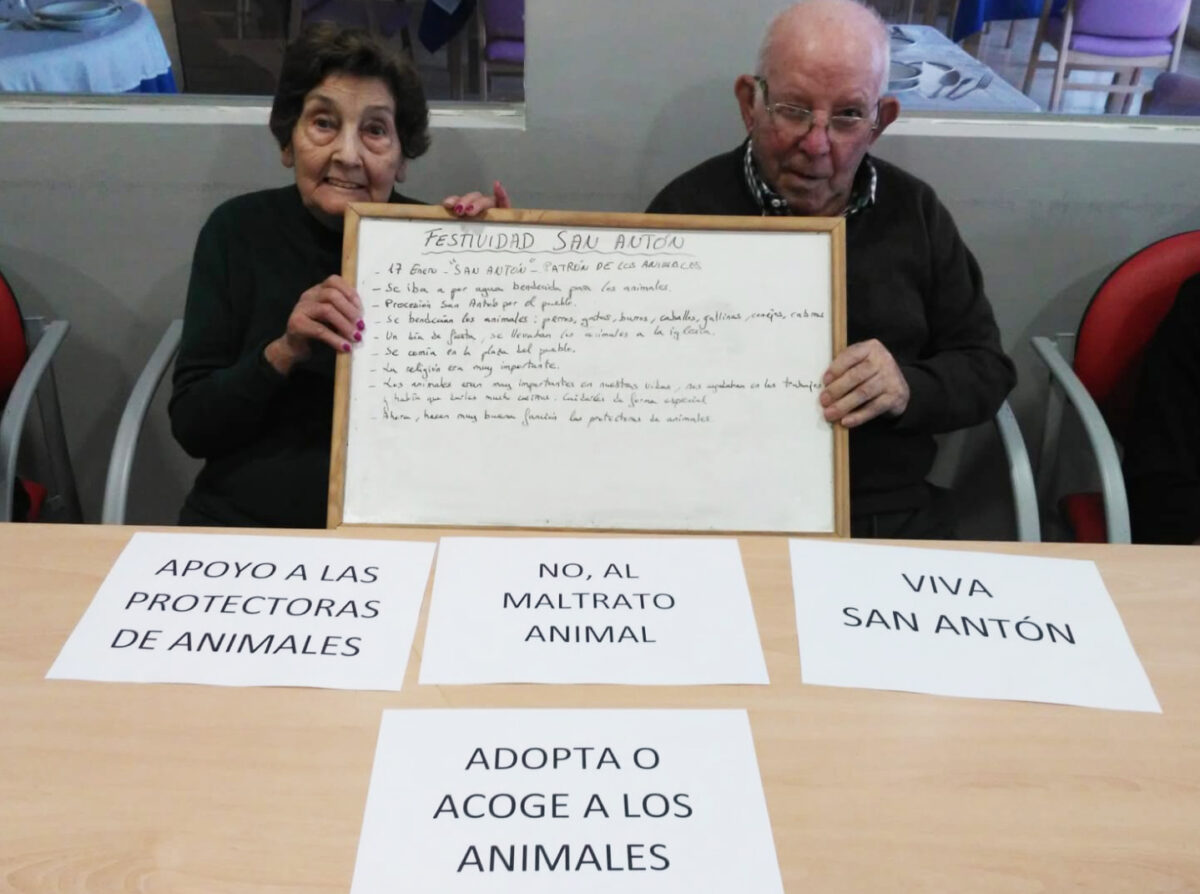 FESTIVIDAD SAN ANTÓN
- 17 Enero - "SAN ANTÓN" - PATRÓN DE LOS ANIMALES
- Se iba a por agua bendecida para los animales.
- Procesión San Antón por el pueblo.
- Se bendecían los animales: perros, gatos, burros, caballos, gallinas, conejos, cabras
- Un día de fiesta, se llevaban los animales a la iglesia.
- Se comía en la plaza del pueblo.
- La religión era muy importante.
- Los animales eran muy importantes en nuestras vidas, nos ayudaban en los trabajos
y había que darles mucho cariño. Cuidarles de forma especial
- Ahora, hacen muy buena función las protectoras de animales.
APOYO A LAS
PROTECTORAS
DE ANIMALES
NO, AL
MALTRATO
ANIMAL
VIVA
SAN ANTÓN
ADOPTA O
ACOGE A LOS
ANIMALES